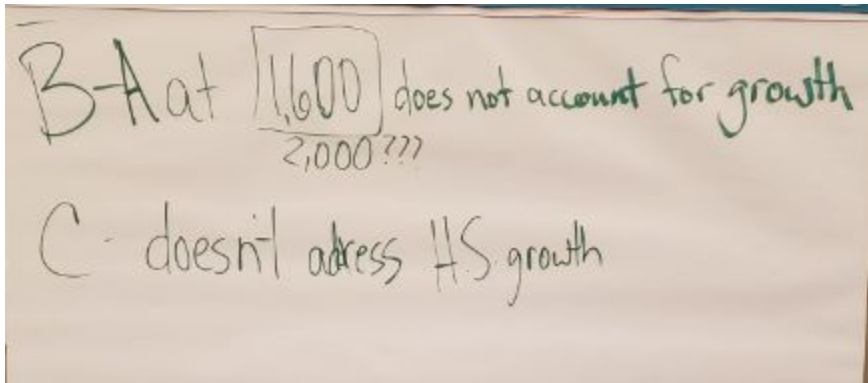 B-A at 1,600 does not account for growth
2,000???
C - doesn't adress HS growth